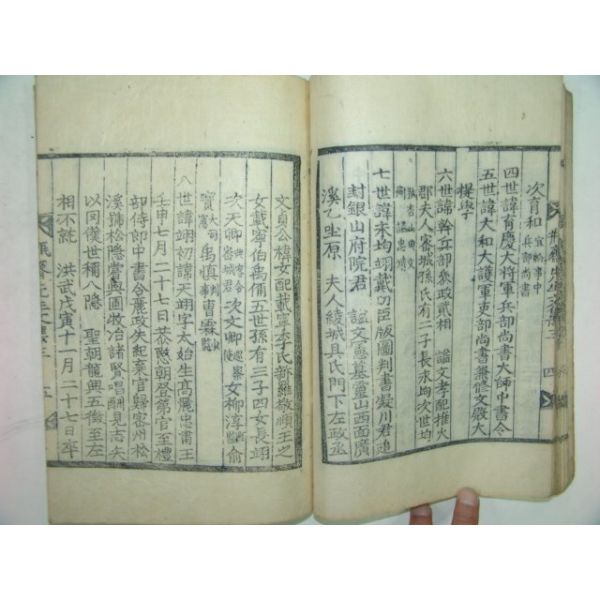 次育和 宣給事中 兵部尚書
四世諱育慶大將軍兵部尚書大師中書令
五世諱大和大護軍吏部尚書兼修文殿大
提學
六世諱幹丘部參政貳相 諡文孝配推火
郡夫人密城孫氏有二子長永均次世均
典書 諡忠靖
七世諱永均翊戴功臣版圖判書凝川君追
封銀山府院君 諡文憲墓靈山西面廣
溪乙坐原 夫人綾城具氏門下左政丞
文貞公禕女配載寧李氏新羅敬順王之
女載寧伯禹偁五世孫有三子四女長翊
次天卿 典客令 密城君 次文卿 女柳淳 監務 俞
寶 大憲 禹愼 判事 曹雲 監
八世諱翊初諱天翊字太始生高麗忠肅王
壬申七月二十七日恭愍朝登第官至禮
部侍郎中書令麗政失紀棄官歸密州松
溪號松隱嘗與圃牧冶諸賢唱酬見志矢
以罔僕世稱八隱 聖朝龍興五徵至左
相不就 洪武戊寅十一月二十七日卒